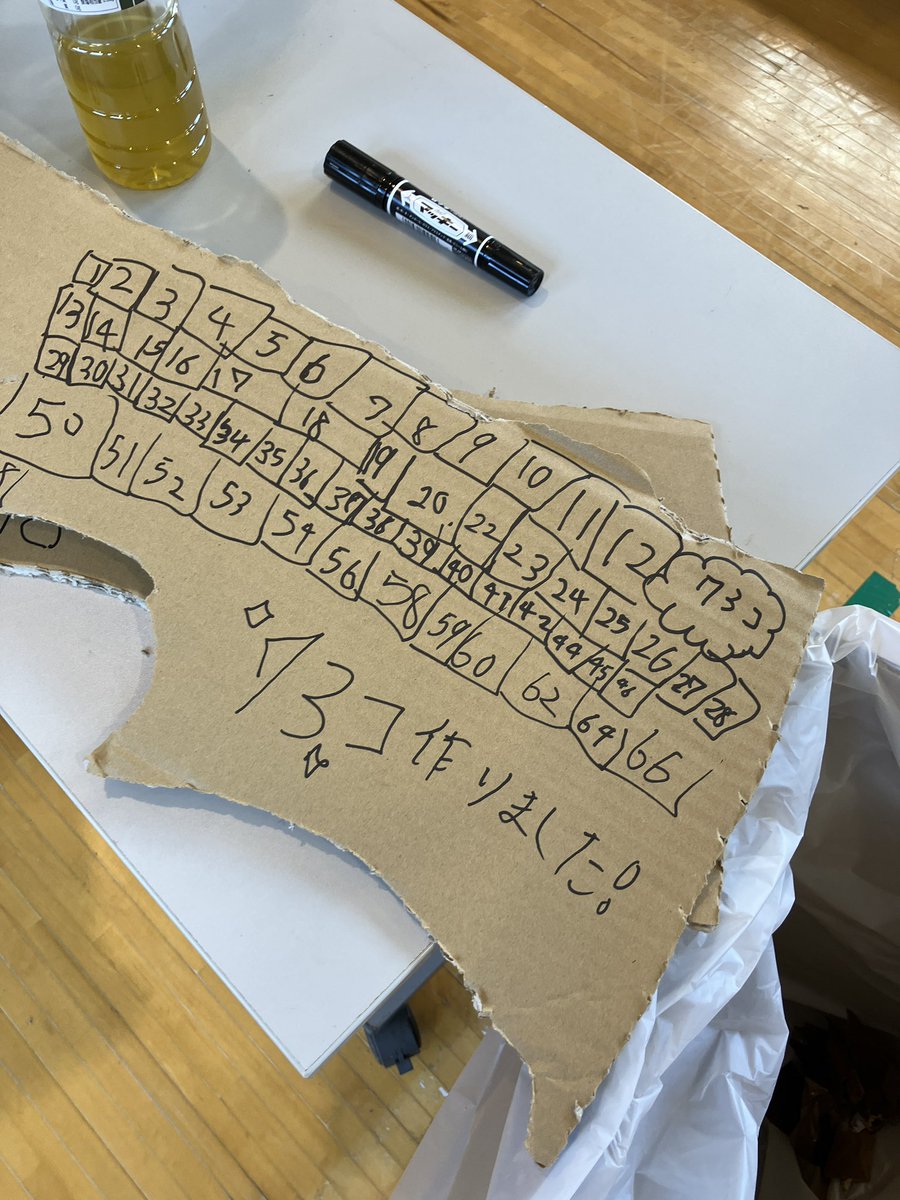 マッキー
1 2 3 4 5 6 7 8 9 10 11 12 73コ
13 14 15 16 17 18 19 20 22 23 24 25 26 27 28
29 30 31 32 33 34 35 36 37 38 39 40 41 42 44 45 46
50 51 52 53 54 56 58 59 60 62 64 66
8
73コ作りました!